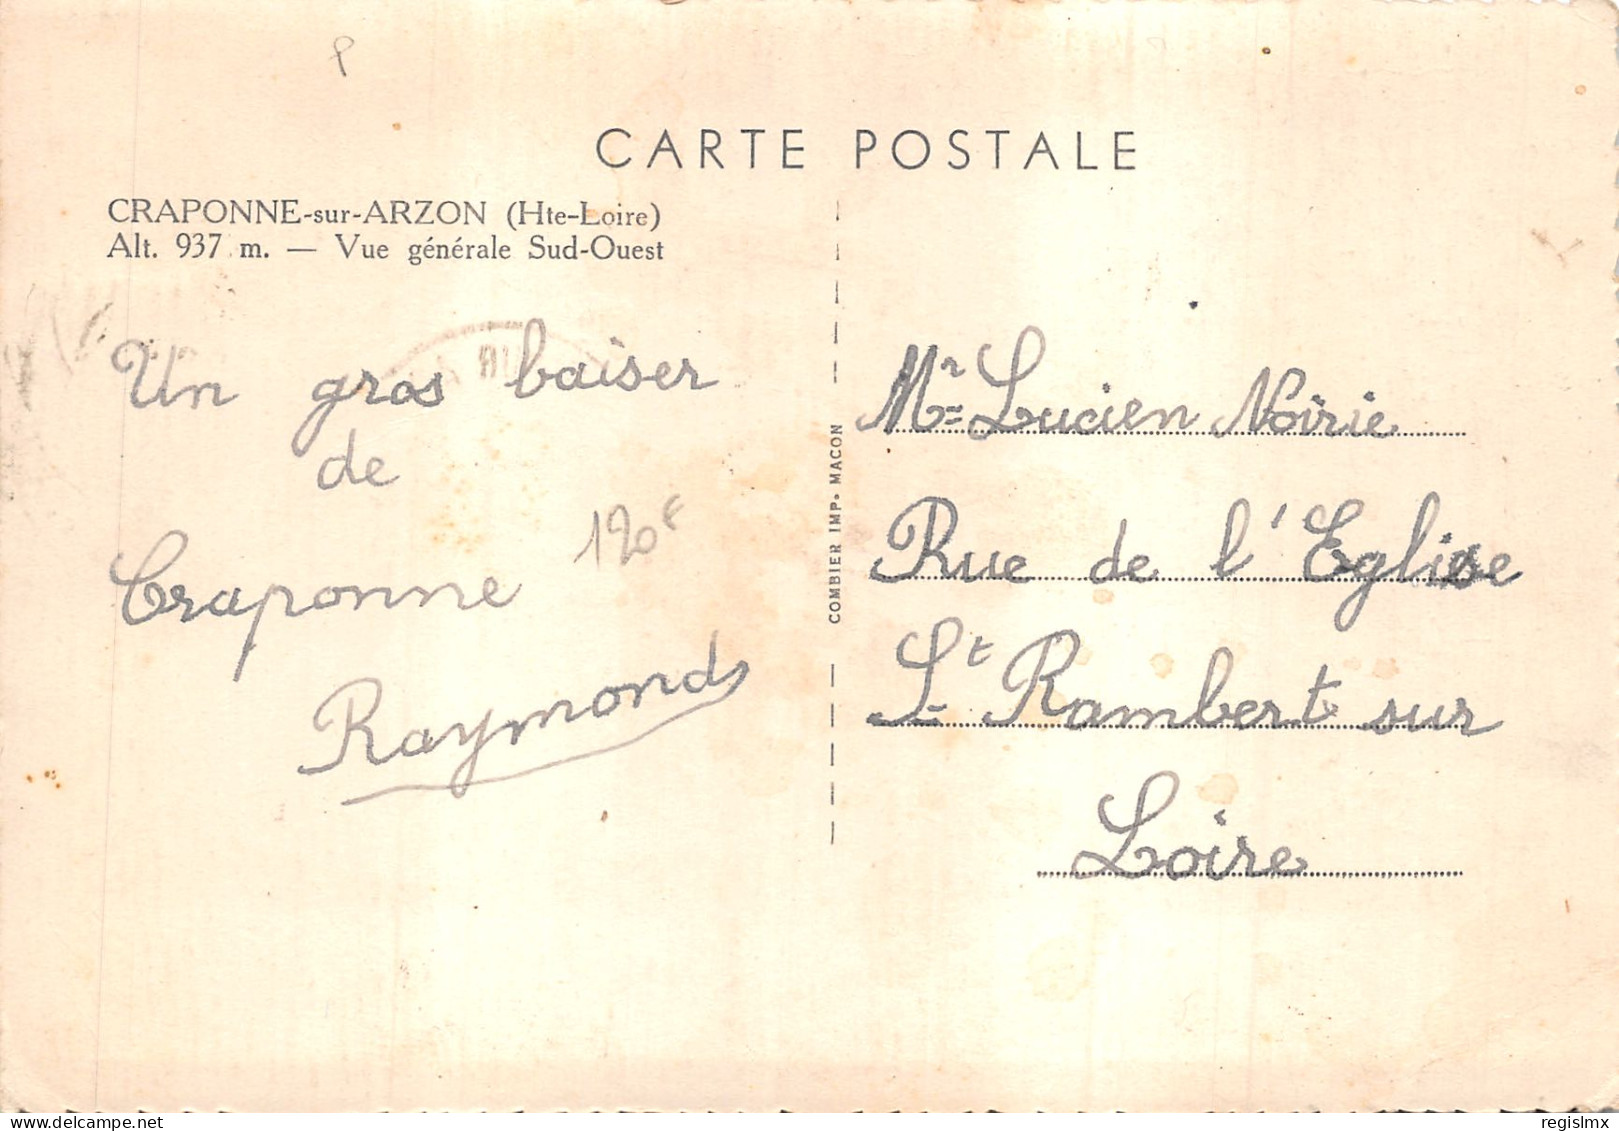 P
CARTE POSTALE
CRAPONNE-sur-ARZON (Hte-Loire)
Alt. 937 m. — Vue générale Sud-Ouest
Un gros baiser
de
Craponne
120F
Raymonds
COMBIER IMP. MACON
Mr Lucien Noirie
Rue de l'Eglise
St Rambert sur
Loire
delcampe.net
regislmx